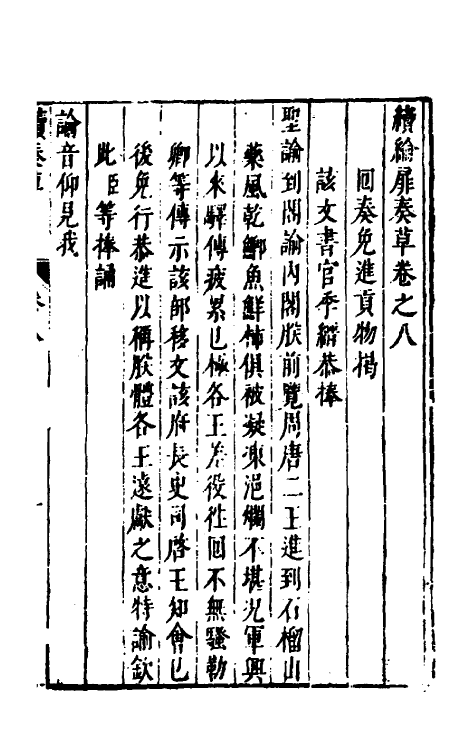 續綸扉奏草卷之八
回奏免進貢物揭
該文書官季縉恭捧
聖諭到閣諭內閣朕前覽周唐二王進到石榴山
藥風乾鯽魚鮮柿俱被凝凍浥爛不堪況軍興
以來驛傳疲累已極各王差役往回不無騷勒
卿等傳示該部移文該府長史司啓王知會已
後免行恭進以稱朕體各王遠獻之意特諭欽
此臣等捧誦
諭音仰見我
續奏草
卷八
一